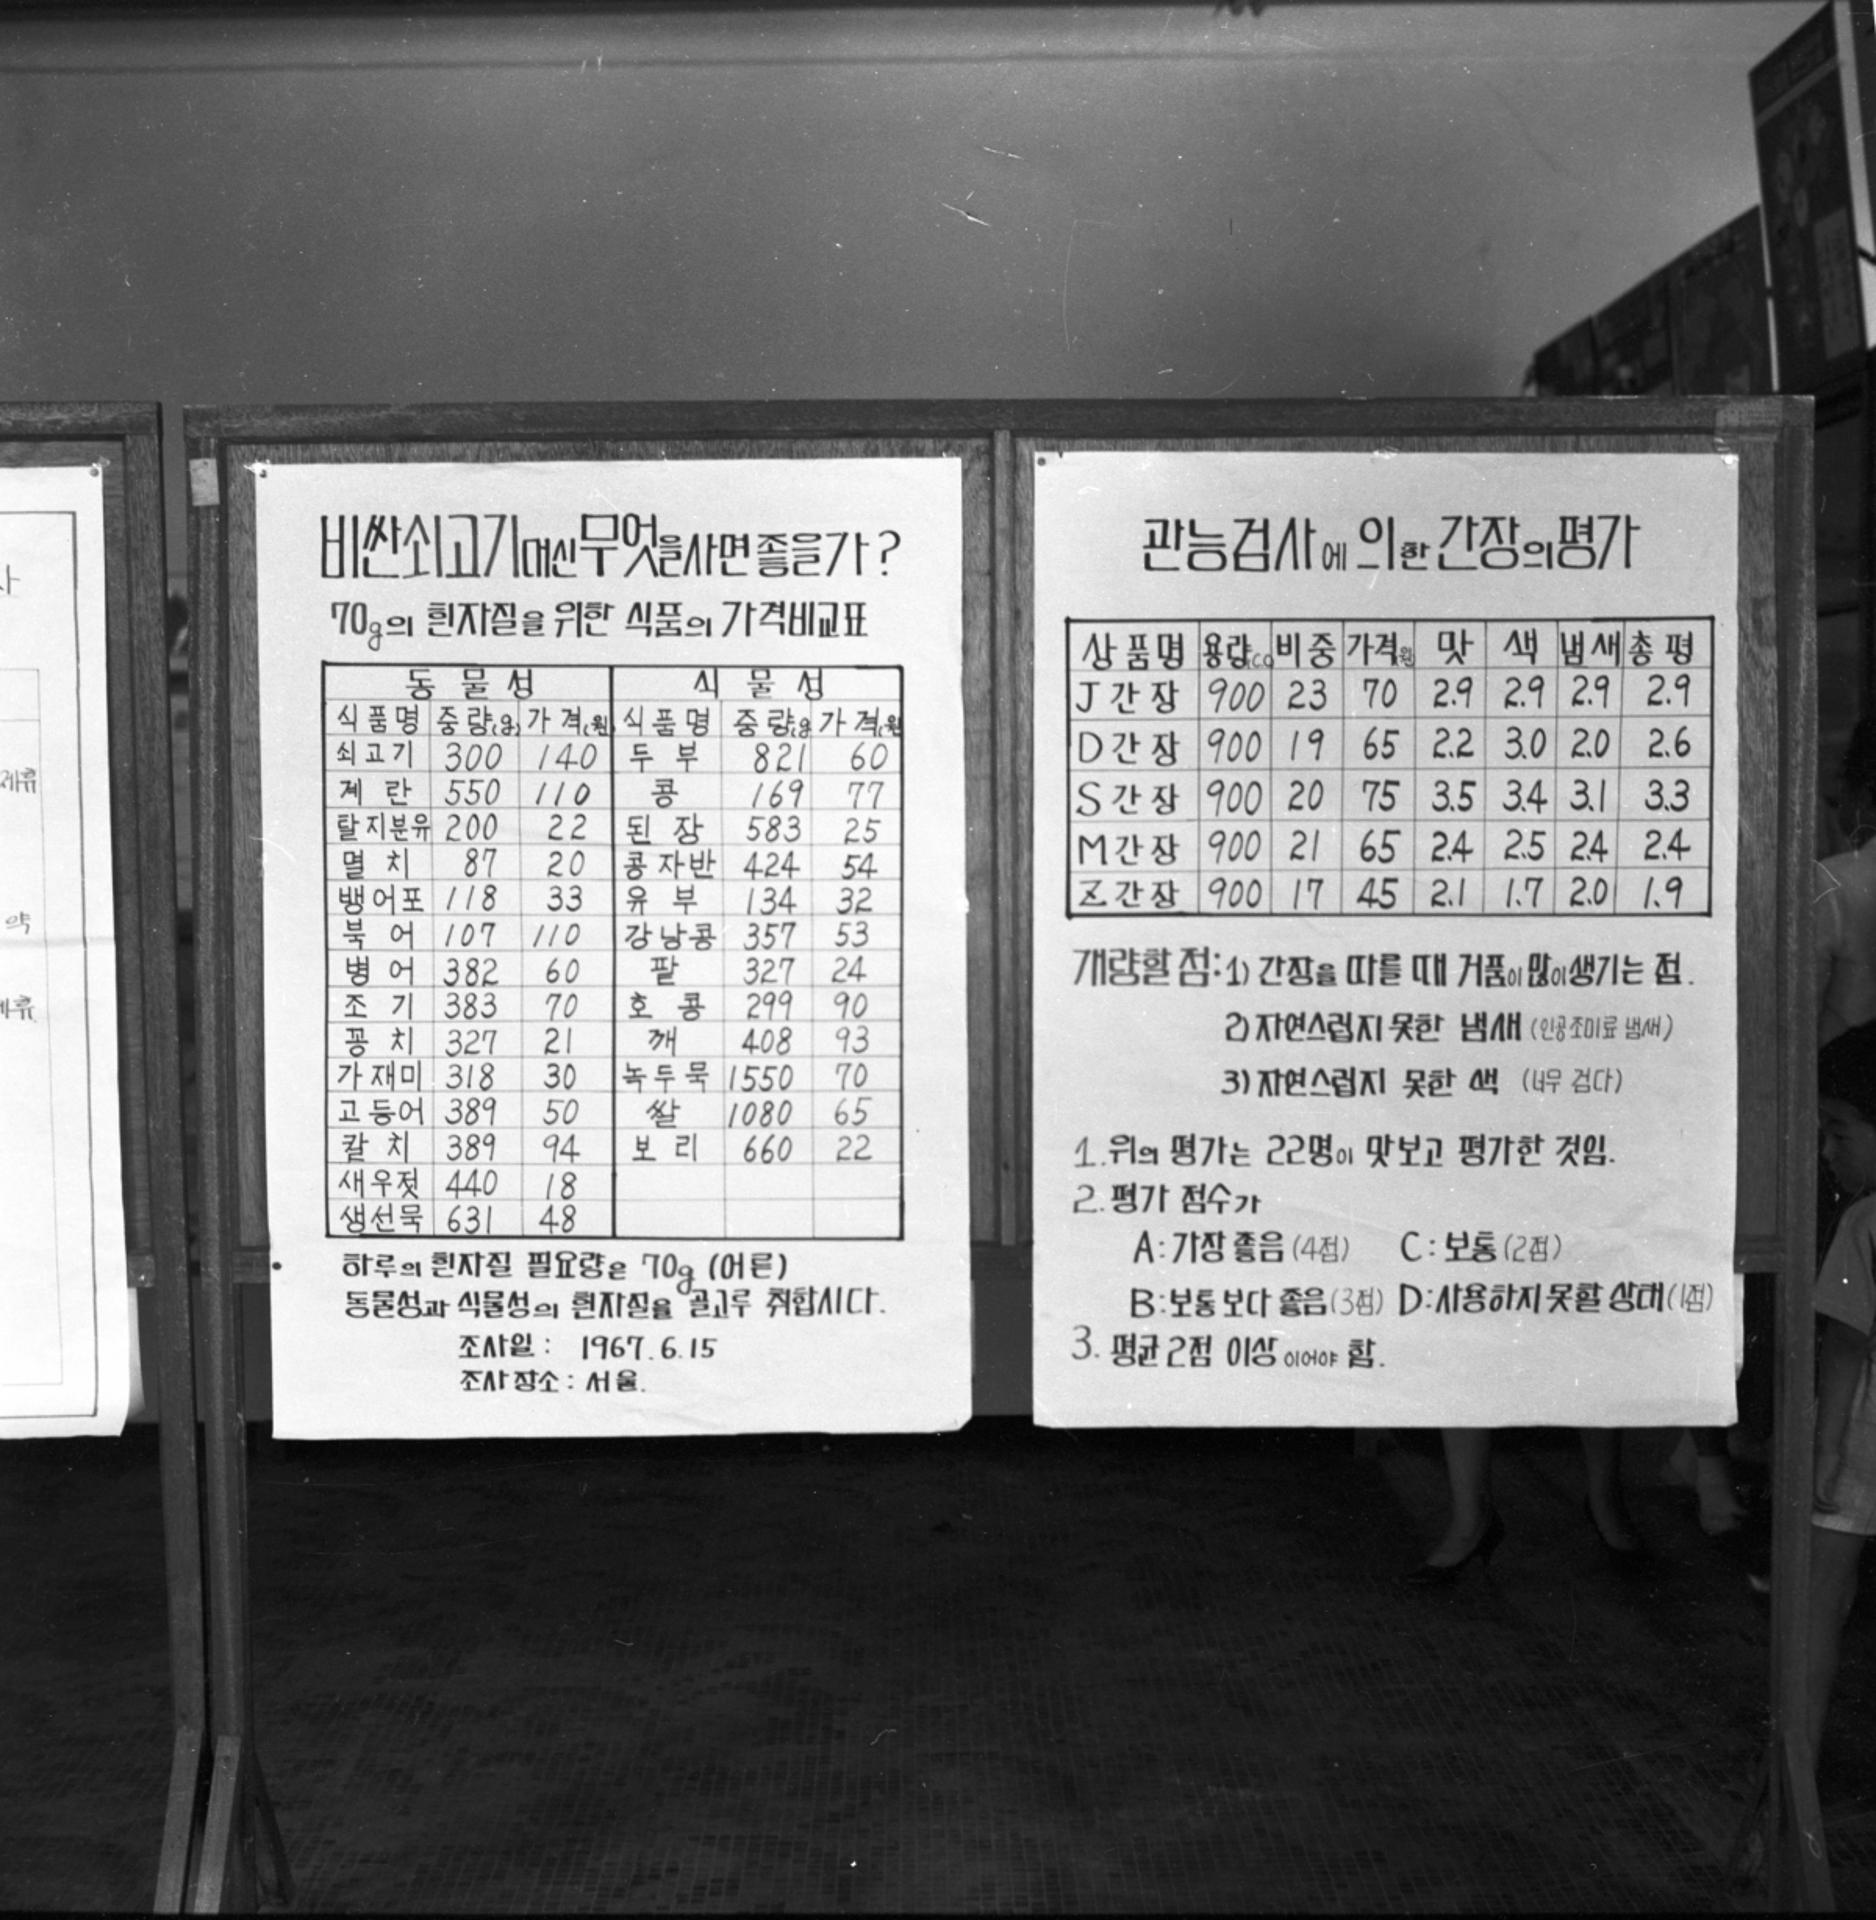 사
제류
약
제류
비싼쇠고기대신무엇을사면좋을가?
70g의 흰자질을 위한 식품의 가격비교표
동물성 식물성
식품명 중량(g) 가격(원) 식품명 중량(g 가격(원
쇠고기 300 140 두부 821 60
계란 550 110 콩 169 77
탈지분유 200 22 된장 583 25
멸치 87 20 콩자반 424 54
뱅어포 118 33 유부 134 32
북어 107 110 강낭콩 357 53
병어 382 60 팥 327 24
조기 383 70 호콩 299 90
꽁치 327 21 깨 408 93
가재미 318 30 녹두묵 1550 70
고등어 389 50 쌀 1080 65
칼치 389 94 보리 660 22
새우젓 440 18
생선묵 631 48
하루의 흰자질 필요량은 70g (어른)
동물성과 식물성의 흰자질을 골고루 취합시다.
조사일: 1967.6.15
조사장소: 서울.
관능검사에 의한 간장의평가
상품명 용량(CC 비중 가격(원 맛 색 냄새 총평
J간장 900 23 70 2.9 2.9 2.9 2.9
D간장 900 19 65 2.2 3.0 2.0 2.6
S간장 900 20 75 3.5 3.4 3.1 3.3
M간장 900 21 65 2.4 2.5 2.4 2.4
Z간장 900 17 45 2.1 1.7 2.0 1.9
개량할점: 1) 간장을 따를 때 거품이 많이생기는 점.
2) 자연스럽지 못한 냄새 (인공조미료 냄새)
3) 자연스럽지 못한 색 (너무 검다)
1. 위의 평가는 22명이 맛보고 평가한 것임.
2. 평가 점수가
A: 가장 좋음 (4점) C: 보통 (2점)
B: 보통보다 좋음 (3점) D: 사용하지못할 상태 (1점)
3. 평균 2점 이상 이어야 함.